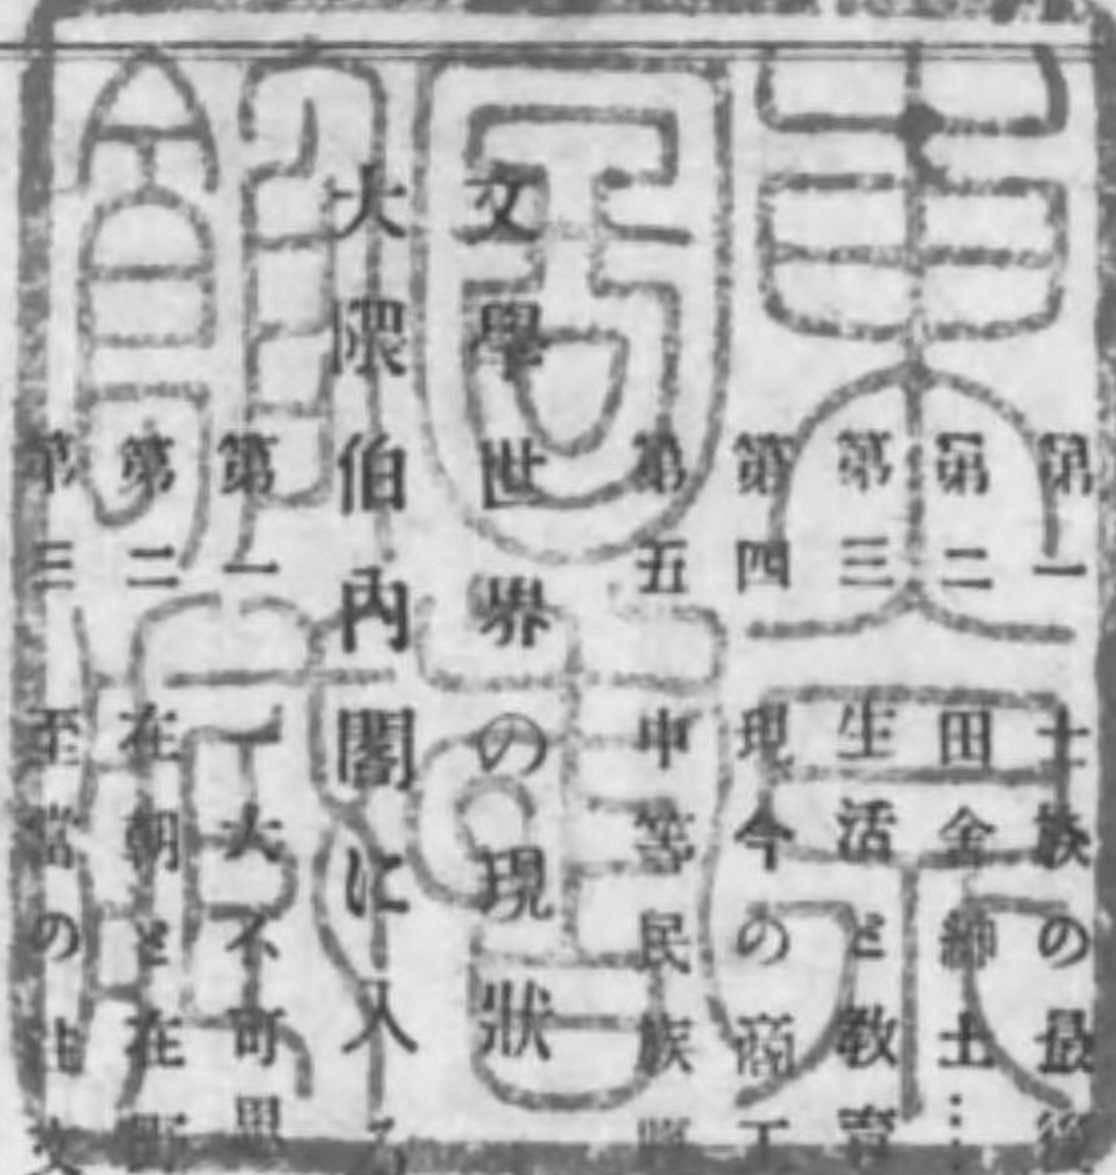 第一 士族の最後
第二 田舍紳士…
第三 生活と教育
第四 現今の商工
第五 中等民族
文學世界の現狀
大隈伯內閣に入る
第一 一大不可思
第二 在朝と在野
第三 至當の
東京圖書館藏